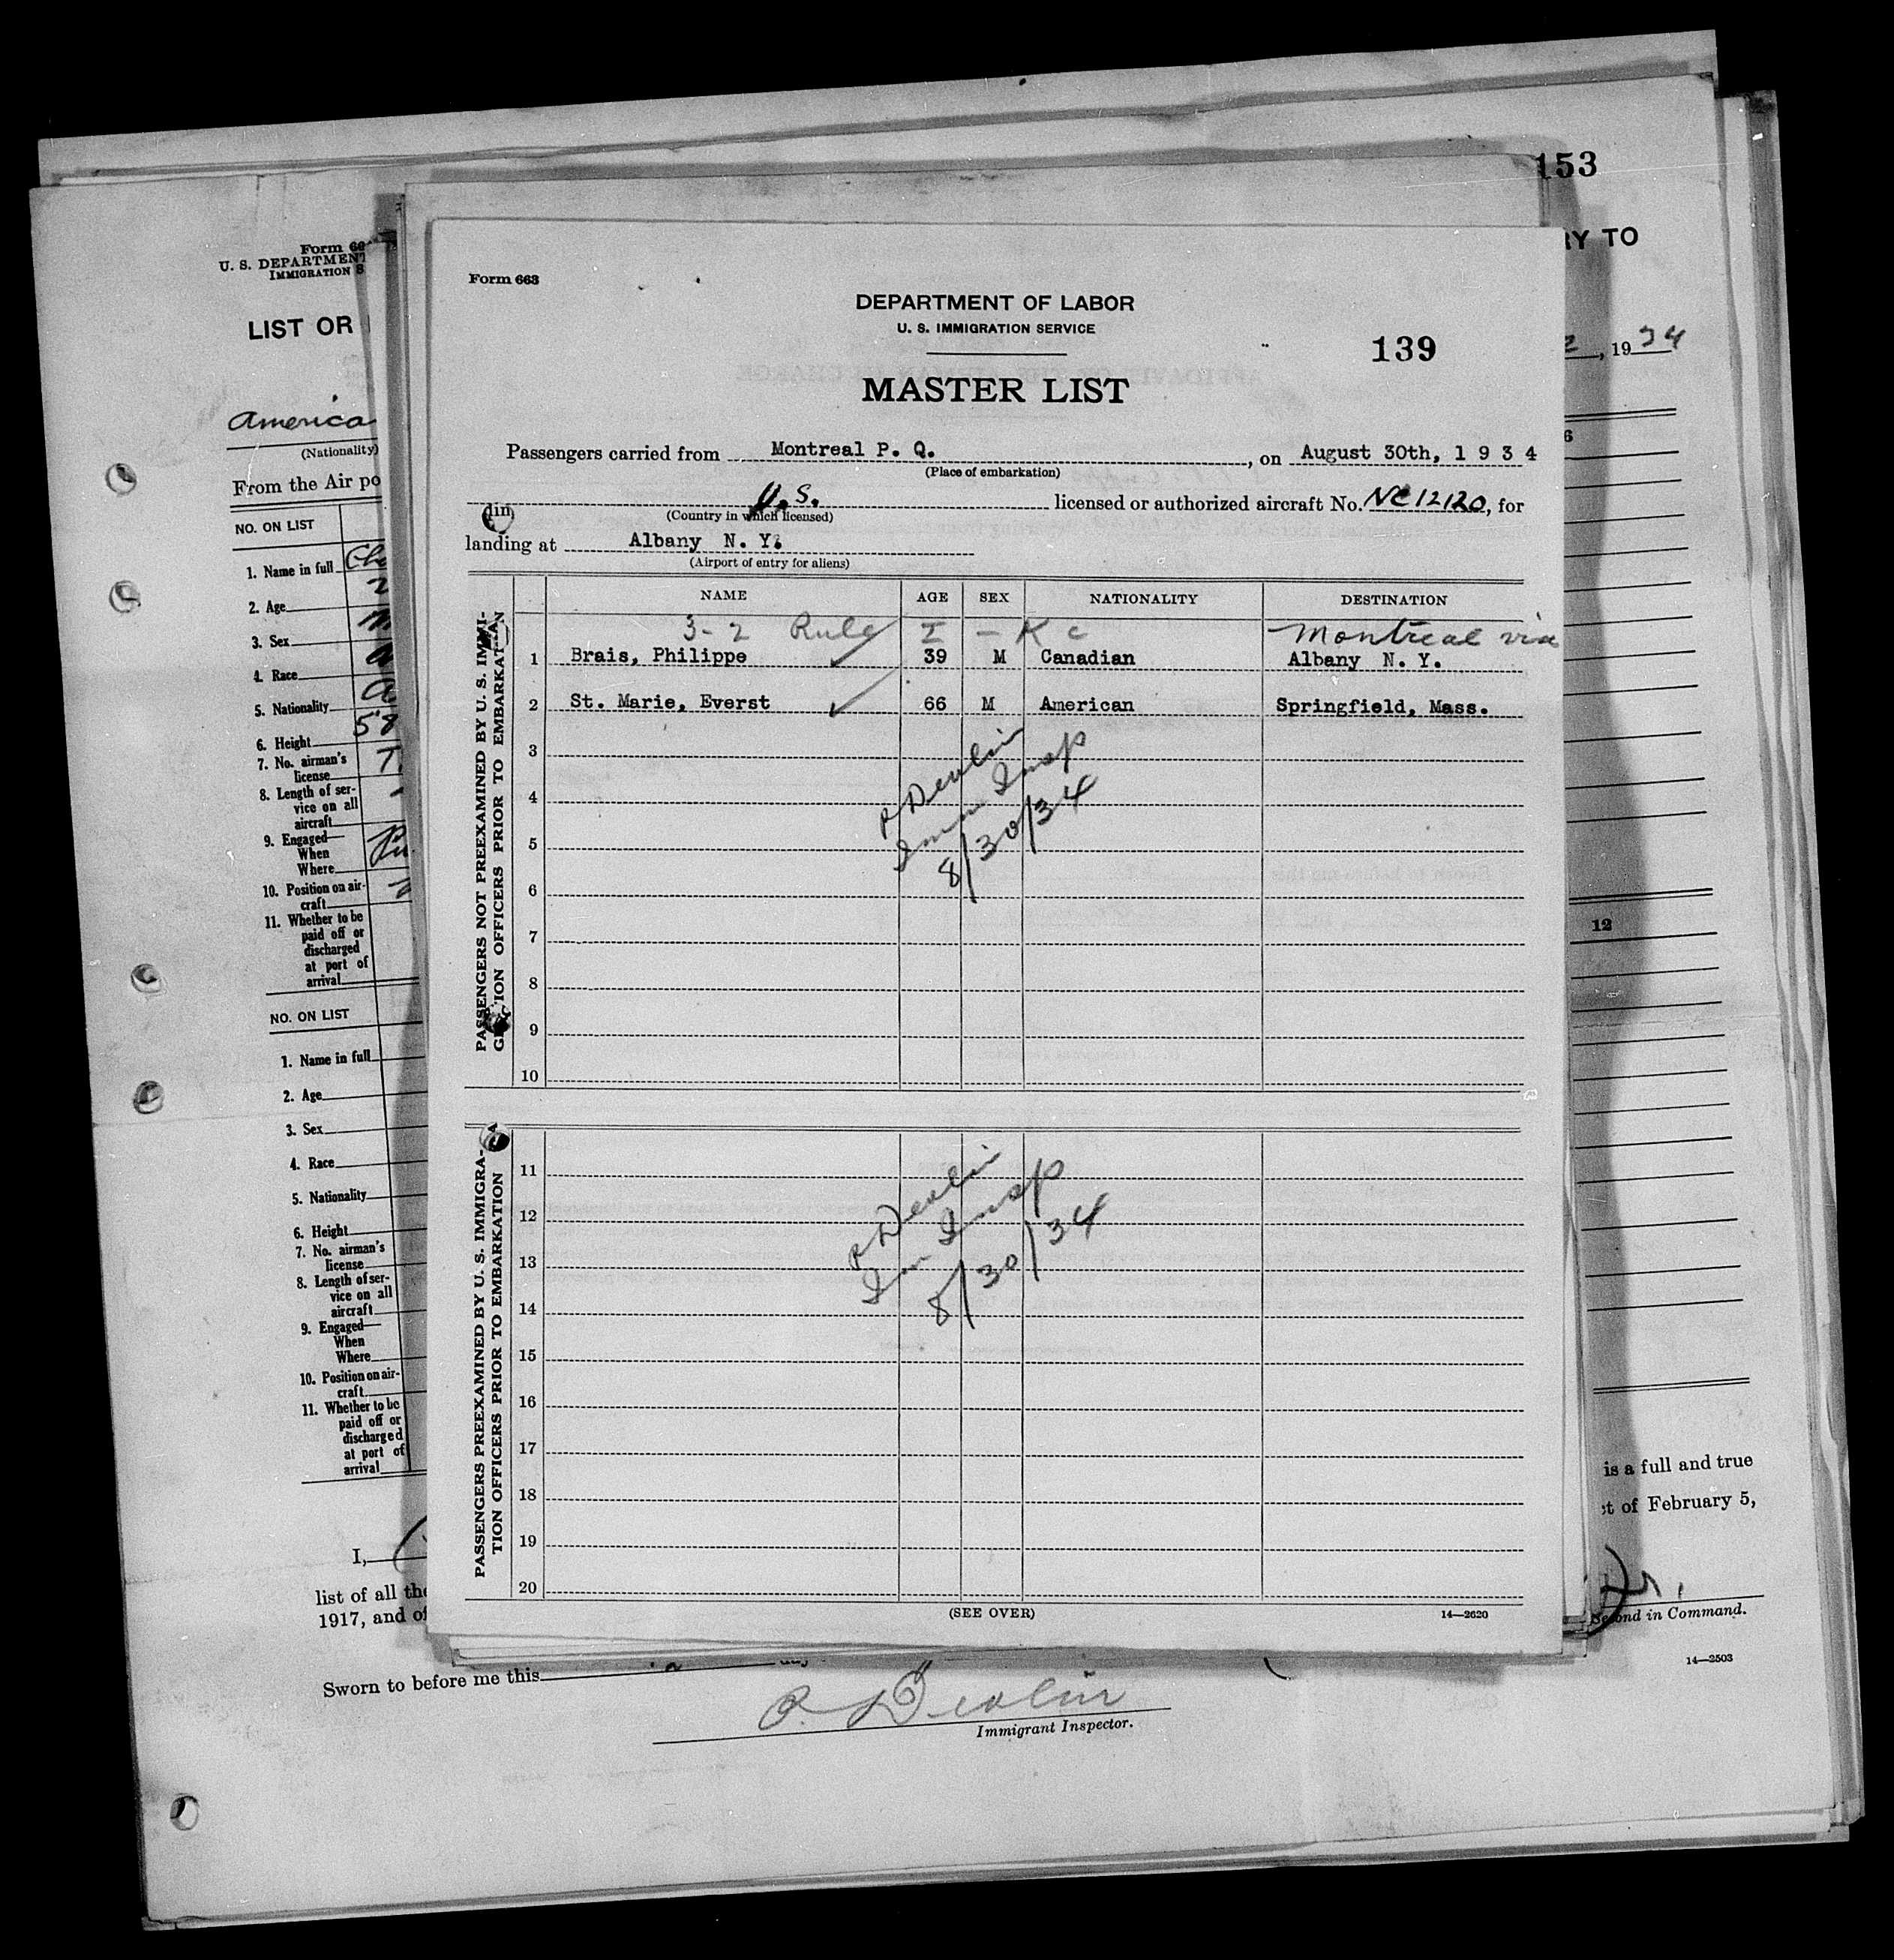 153
RY TO
, 19 34
6
12
is a full and true
ct of February 5,
Second in Command.
14—2503
Form 66
U. S. DEPARTMENT
IMMIGRATION S
LIST OR
America
(Nationality)
From the Air po
NO. ON LIST
1. Name in full
2. Age
3. Sex
4. Race
5. Nationality
6. Height
7. No. airman's
license
8. Length of ser-
vice on all
aircraft
9. Engaged—
When
Where
10. Position on air-
craft
11. Whether to be
paid off or
discharged
at port of
arrival
NO. ON LIST
1. Name in full
2. Age
3. Sex
4. Race
5. Nationality
6. Height
7. No. airman's
license
8. Length of ser-
vice on all
aircraft
9. Engaged—
When
Where
10. Position on air-
craft
11. Whether to be
paid off or
discharged
at port of
arrival
I,
list of all the
1917, and of
Sworn to before me this
P. Devlin
Immigrant Inspector.
Form 663
DEPARTMENT OF LABOR
U. S. IMMIGRATION SERVICE
139
MASTER LIST
Passengers carried from Montreal P. Q. , on August 30th, 1 9 3 4
(Place of embarkation)
U.S. licensed or authorized aircraft No. NC12120, for
(Country in which licensed)
landing at Albany N. Y.
(Airport of entry for aliens)
PASSENGERS NOT PREEXAMINED BY U. S. IMMI-
GRATION OFFICERS PRIOR TO EMBARKATION
NAME AGE SEX NATIONALITY DESTINATION
3-2 Rule I - K c Montreal via
1 Brais, Philippe 39 M Canadian Albany N. Y.
2 St. Marie, Everst 66 M American Springfield, Mass.
3
4
5
6
7
8
9
10
P Devlin
Imm Insp
8/30/34
PASSENGERS PREEXAMINED BY U. S. IMMIGRA-
TION OFFICERS PRIOR TO EMBARKATION
11
12
13
14
15
16
17
18
19
20
P Devlin
Imm Insp
8/30/34
(SEE OVER)
14—2620